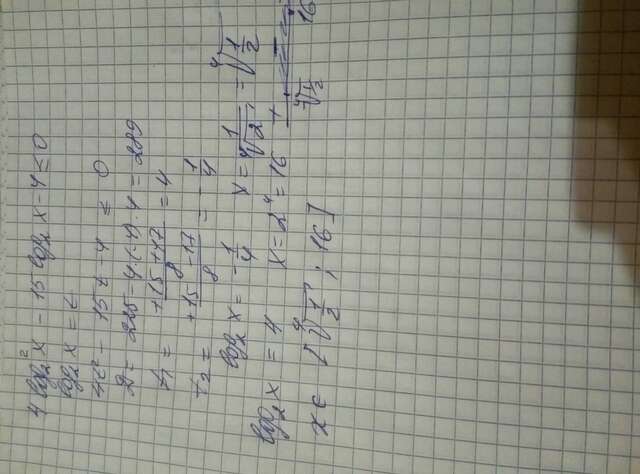 4 log₂² x − 15 log₂ x − 4 ≤ 0
log₂ x = t
4t² − 15t − 4 ≤ 0
D = 225 − 4·(−4)·4 = 289
t₁ = +15+17/8 = 4
t₂ = +15−17/8 = −1/4
log₂ x = −1/4 x = 1/⁴√2 = ⁴√1/2
log₂ x = 4 x = 2⁴ = 16
+ ⁴√1/2 16
x ∈ [⁴√1/2 ; 16]